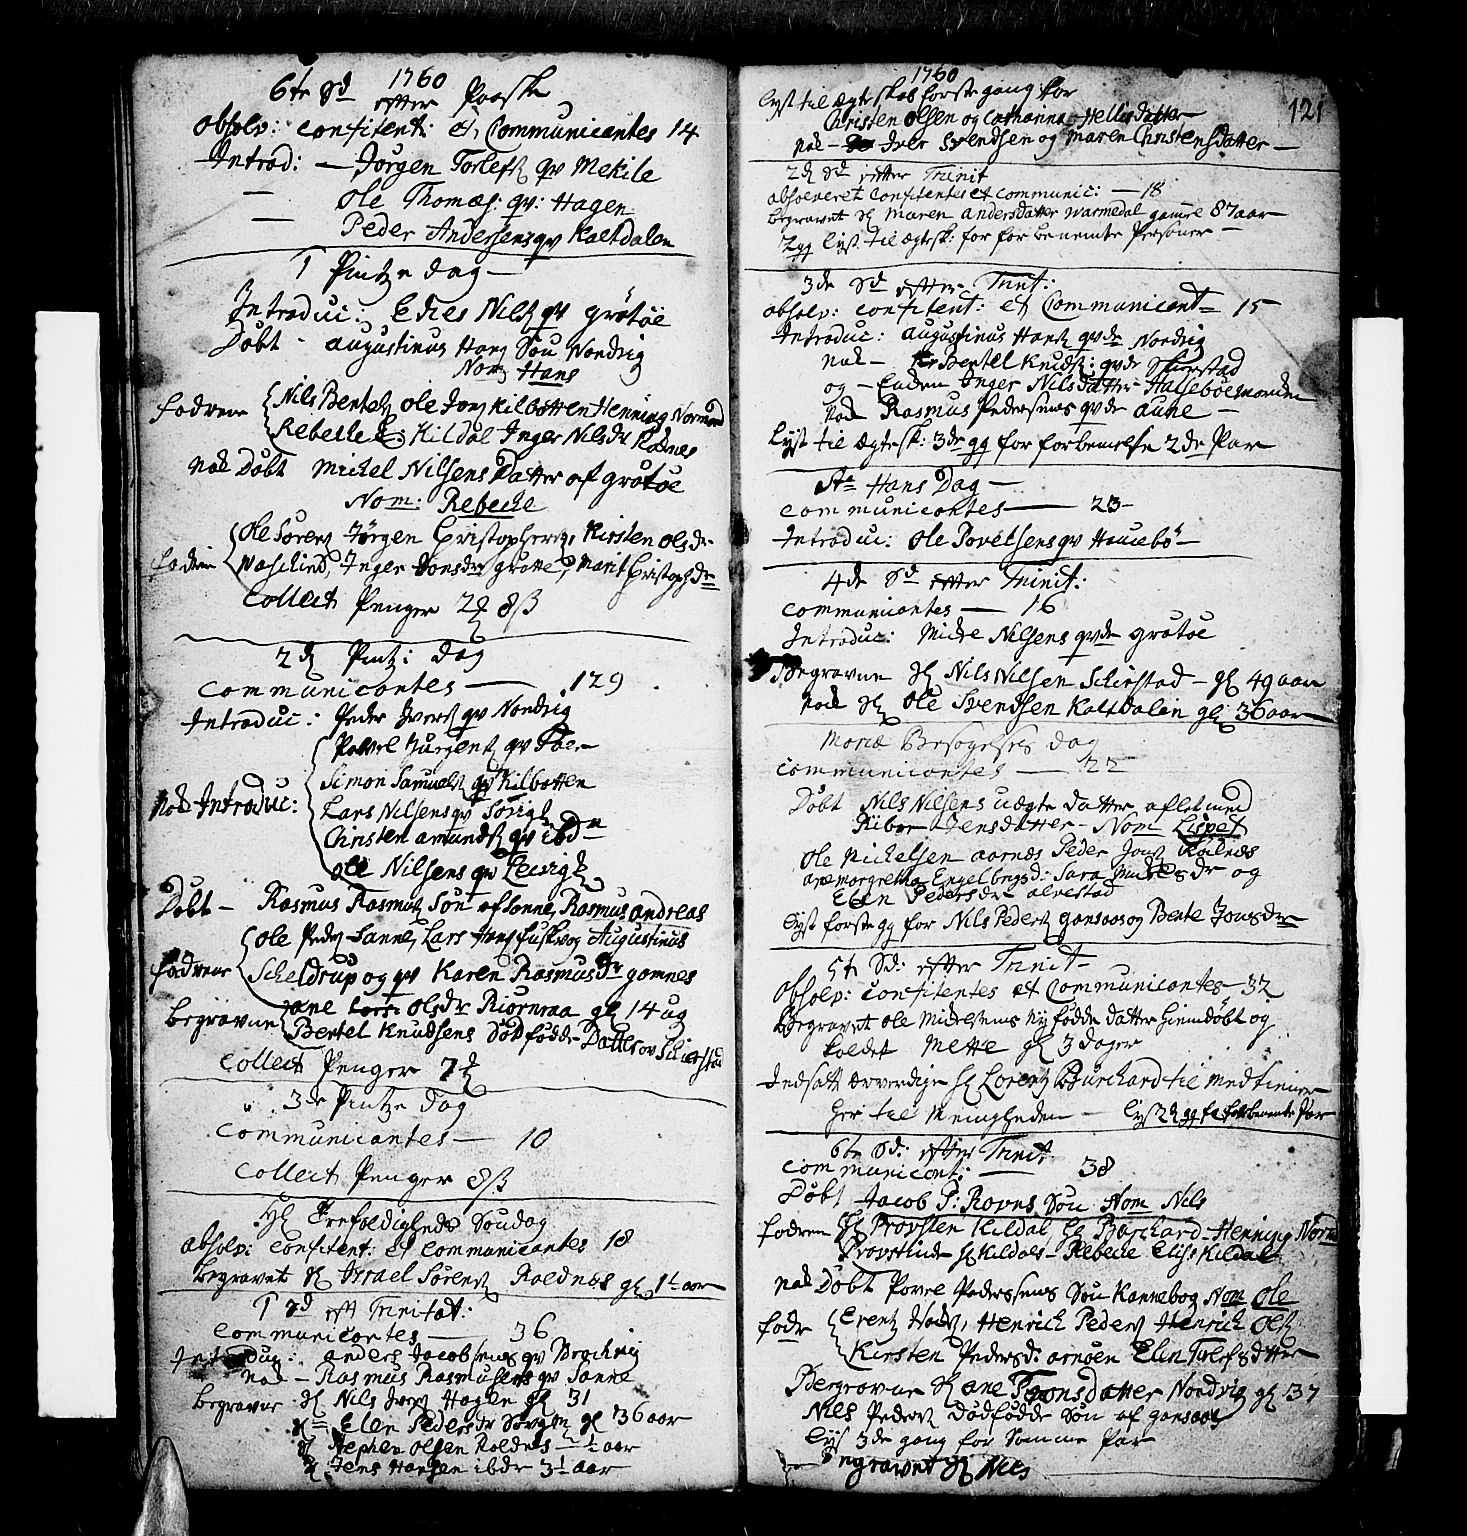 1760
6te Sd efter Paaske
absolv: confitent: et Communicantes 14
Introd: — Jørgen Torlefs qv Mekile
— Ole Thomæs: qv: Hagen
— Peder Andersens qv Kaltdalen
1 Pintze dag —
Introduc: Elies Nils qv grøtøe
Døbt - augustinus Hans Søn Nordvig
Nom Hans
fadrene Nils Bertels Ole Jons Kilbotten Henning Normand
Rebecke Kildal Inger Nilsdr Rodnes
nok Døbt Michel Nilsens Datter af grøtøe
Nom: Rebecke
Ole Sørens Jørgen Christophers, Kirsten Olsdr
fadrene Inger Hansdr grøttøe, Marit Christophdr
Collect Penger 2 8 ß
2d Pintz: dag
communicantes — 129
Introduc: Peder Ivers qv Nordvig
Povel Jørgens qv
Simon Samuels qv Kilbotten
nok Introduc: Lars Nilsens qv Sørvig
Christen amunds qv ibdn
Ole Nilsens qv Lervig
Døbt — Rasmus Rasmus Søn af Sanne, Rasmus andreas
Ole Peders Sanne, Lars Jans og Augustinus
fadrene Scheldrup og qv Karen Rasmusdr gomnes
Begravne ane Olsdr Biørnraa gl 14 ug
Bertel Knudsens Dødfødde Datter ov Schierstad
Collect Penger 7
3de Pintze dag
communicantes — 10
Collect Penger 8 ß
Hl Trefoldigheds Søndag
absolv: confitent: et communicantes 18
begravet Israel Sørens Roednes gl 1½ aar
1 Sd eft Trinitat:
communicantes — 36
Introduc: anders Jacobsens qv Brochvig
nok — Rasmus Rasmusens qv Sanne
begravne Nils Ivers Hagen gl 31
Elen Pedersdr Sørvigen gl 36 aar
Stephen Olsen Roldnes — ½ aar
Jens Hansen ibdr 3½ aar
1760
121
lyst til ægteskab første gang for
Christen Olsen og Catharina Hellisdatter
nok — Iver Svendsen og Maren Christensdatter —
2d Sd efter Trinit
absolveret confitentes et communic: — 18
begravet Maren andersdatter Warmedal gamle 87 aar
2gg lyst til ægtesk: for for benemte Personer —
3de Sd efter Trinit:
absolv: confitent: et Communicant 15
Introduc: augustinus Hans qvde Nordvig
nok — Bertel Knuds: qvde Skierstad
og — Enden Inger Nilsdatter
nok Rasmus Pedersens qvde aune —
lyst til ægtesk: 3de gg for forbemelte 2de Par
St Hans Dag —
communicantes — 23
Introduc: Ole Povelsens qv Hauebø
4de Sd efter Trinit:
communicantes — 16
Introduc: Michel Nilsens qvde grøtøe
Begravne Nils Nilsen Schierstad — gl 49 aar
nok Ole Svendsen Kaltdalen gl 36 aar
Mariæ Besøgelses dag
communicantes — 22
Døbt Nils Nilsens uægte datter aflet med
Jensdatter — Nom Lispet
Ole Michelsen aarnes Peder Jons
anemargretha Engelbrigsd: Sara Michelsdr og
Elen Pedersdr alvestad
lyst første gg for Nils Peders gansaas og Berte Jonsdr
5t Sd: efter Trinit
Absolv: confitentes et Communicantes 32
Begravet Ole Michelsens ny fødde datter hiemdøbt og
kaldet Mette gl 3 dager
Indsatt ærverdige Lorents Burchard til Medtiener
her til Menigheden — lyst 2d gg for forbenente Par
6te Sd: efter Trinit
communicant: — 38
Døbt Jacob P: Ravns Søn Nom Nils
fadren Provsten Kildal Burchard Henning Norm
Provstinde Kildals — Rebecke Elis Kildal
nok Døbt Povel Pedersens Søn Kannebog Nom Ole
fadr Erents Henrich Peders Henrich Ols
Kirsten Pedersdr arnøen Elen Tolefsdatter
Begravne ane Tronsdatter Nordvig gl 37
Niels Peders dødfødde Søn af gansaas
lyst 3de gang for Samme Par
Begravet Nils